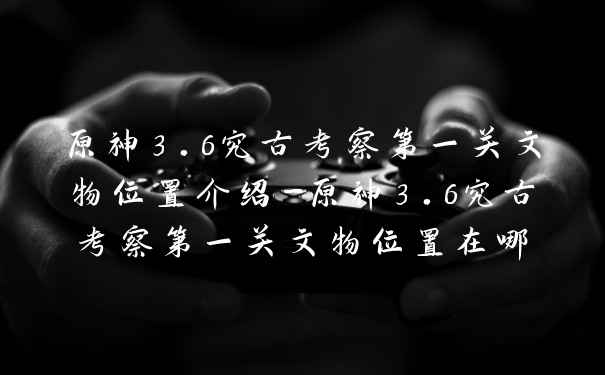 原神3.6究古考察第一关文
物位置介绍-原神3.6究古
考察第一关文物位置在哪